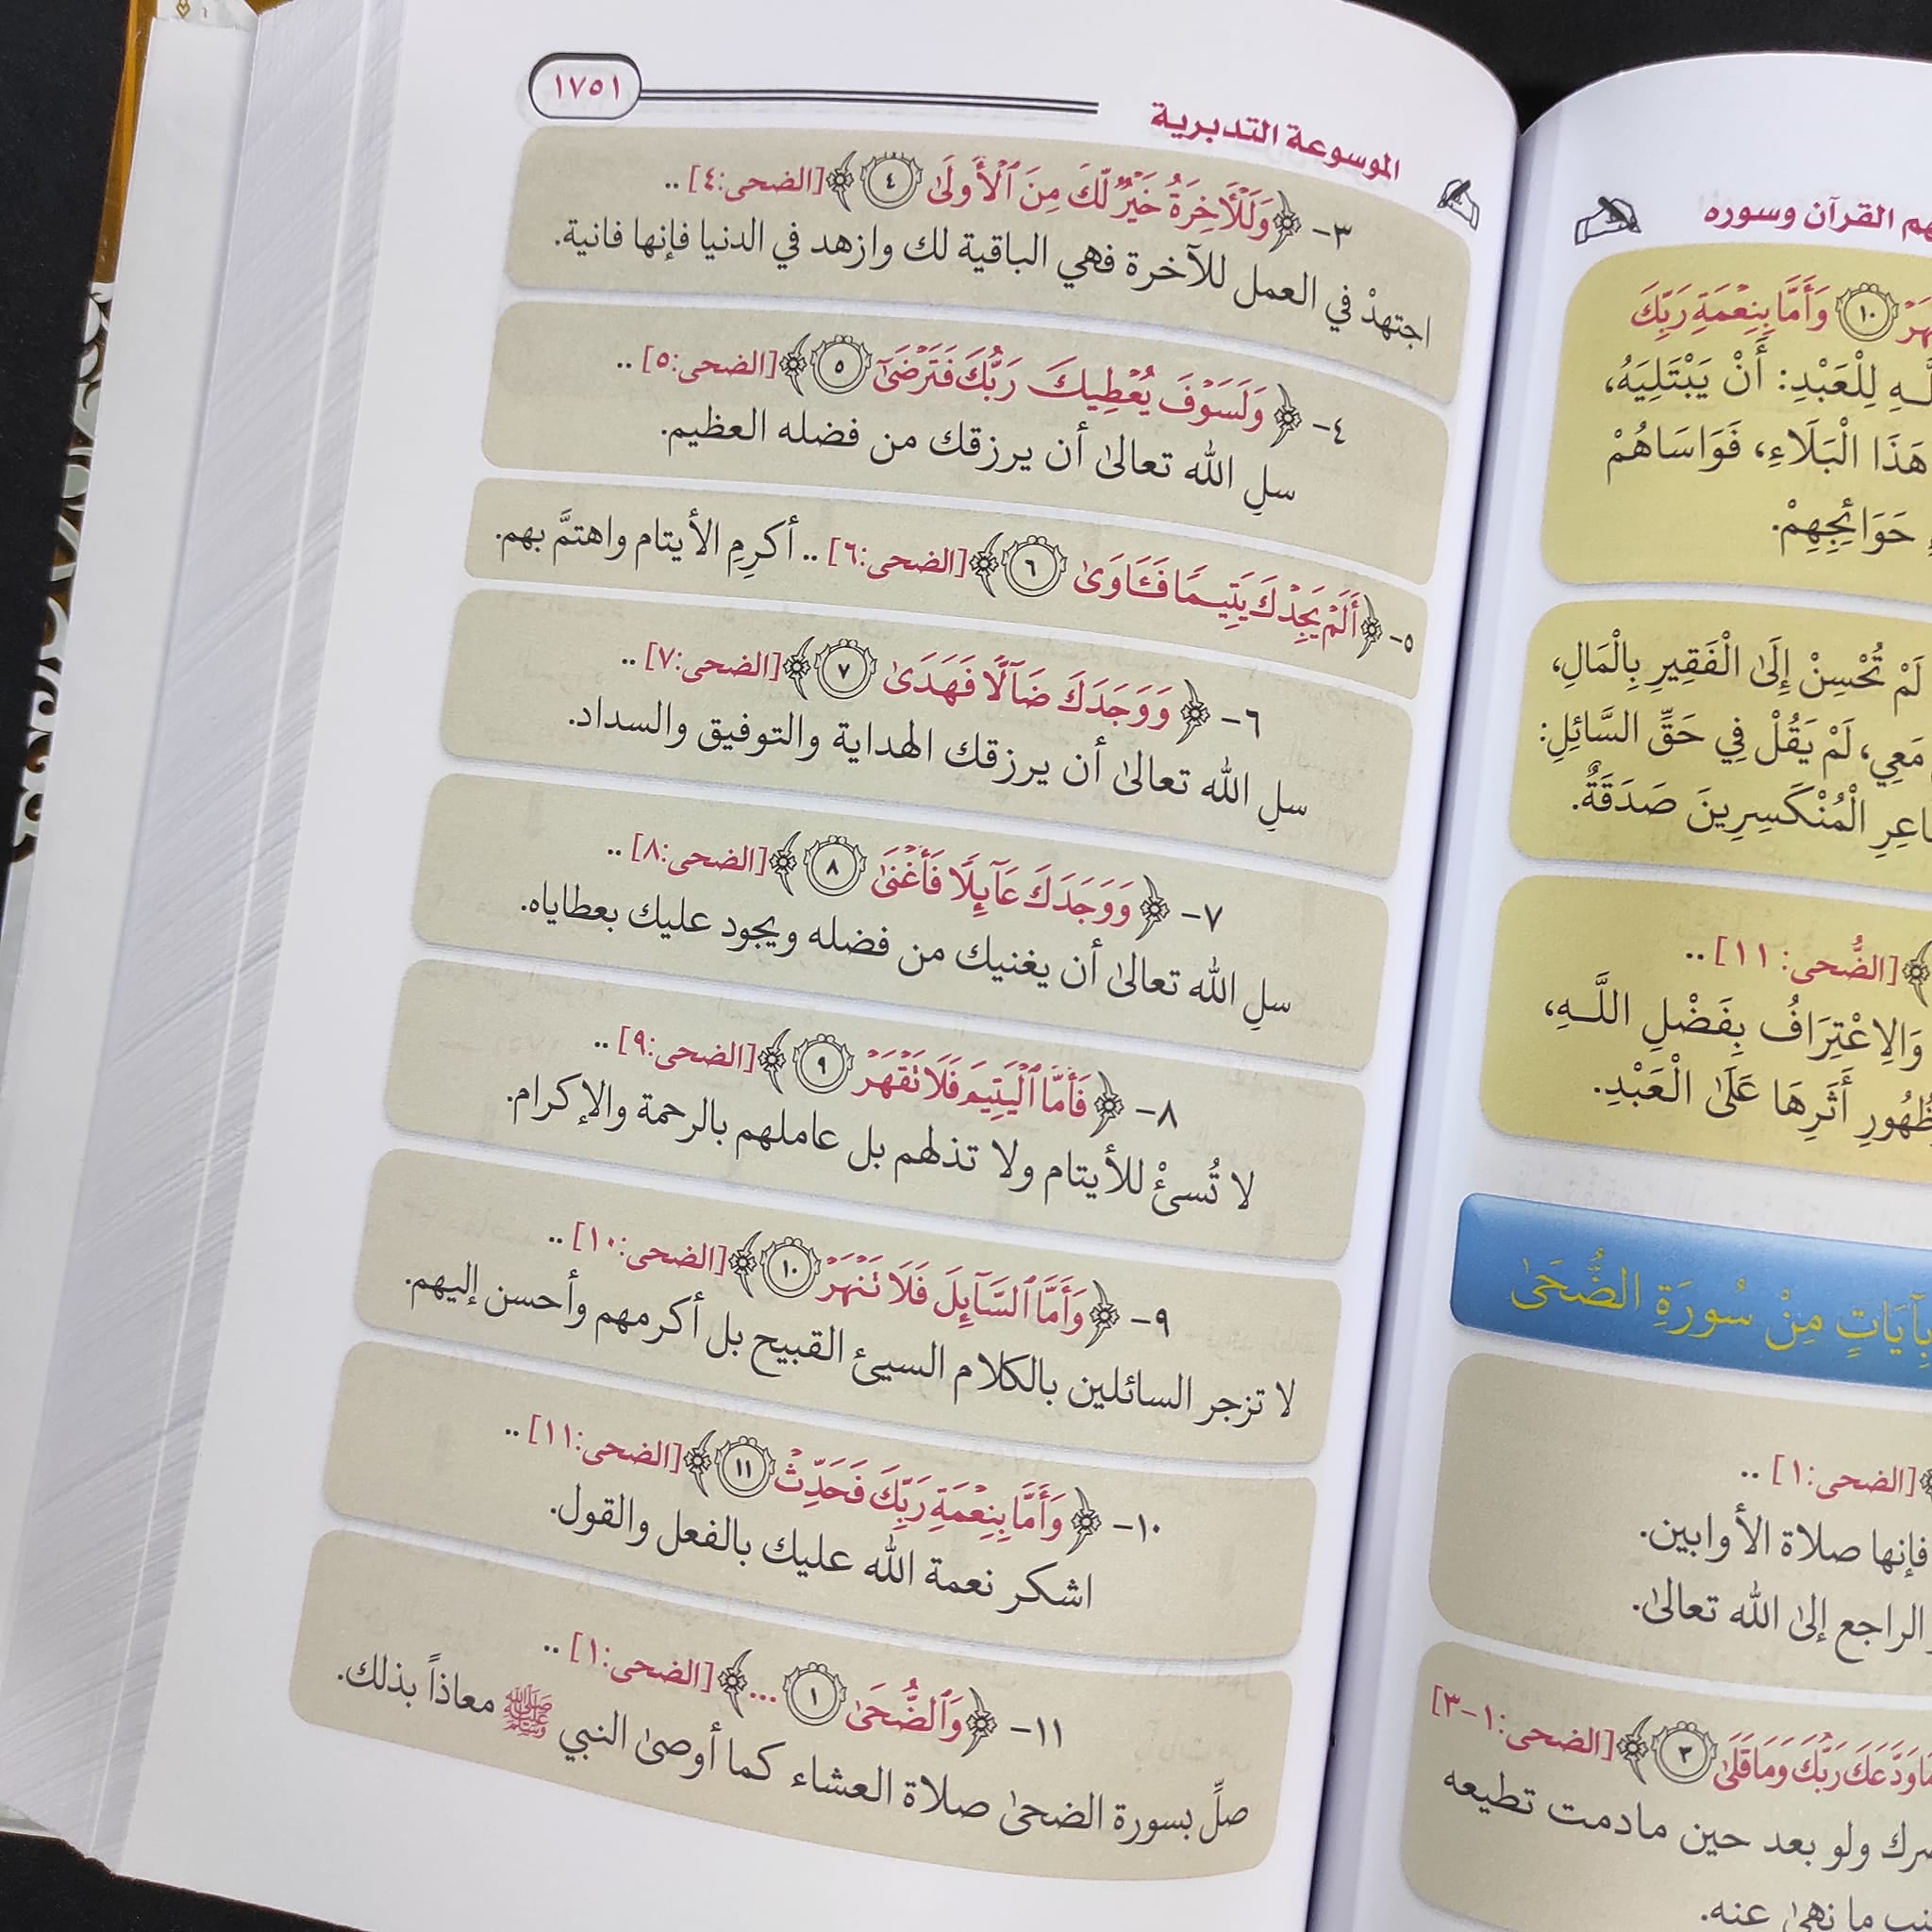 هم القرآن وسوره
١٠ وَأَمَّا بِنِعْمَةِ رَبِّكَ
لِلْعَبْدِ: أَنْ يَبْتَلِيَهُ،
هَذَا الْبَلَاءِ، فَوَاسَاهُمْ
حَوَائِجِهِمْ.
لَمْ تُحْسِنْ إِلَىٰ الْفَقِيرِ بِالْمَالِ،
مَعِي، لَمْ يَقُلْ فِي حَقِّ السَّائِلِ:
الْمُنْكَسِرِينَ صَدَقَةٌ.
[الضُّحى: ١١] ..
وَالِاعْتِرَافُ بِفَضْلِ اللَّـهِ،
أَثَرِهَا عَلَىٰ الْعَبْدِ.
بِآيَاتٍ مِنْ سُورَةِ الضُّحَىٰ
[الضحى:١] ..
فإنها صلاة الأوابين.
الراجع إلىٰ الله تعالىٰ.
مَا وَدَّعَكَ رَبُّكَ وَمَا قَلَىٰ ٣﴾ [الضحى:١-٣]
ولو بعد حين مادمت تطيعه
ما نهىٰ عنه.
الموسوعة التدبرية ١٧٥١
٣- ﴿وَلَلْآخِرَةُ خَيْرٌ لَّكَ مِنَ ٱلْأُولَىٰ ٤﴾ [الضحى:٤] ..
اجتهدْ في العمل للآخرة فهي الباقية لك وازهد في الدنيا فإنها فانية.
٤- ﴿وَلَسَوْفَ يُعْطِيكَ رَبُّكَ فَتَرْضَىٰٓ ٥﴾ [الضحى:٥] ..
سلِ الله تعالىٰ أن يرزقك من فضله العظيم.
٥- ﴿أَلَمْ يَجِدْكَ يَتِيمًا فَـَٔاوَىٰ ٦﴾ [الضحى:٦] .. أكرِمِ الأيتام واهتمَّ بهم.
٦- ﴿وَوَجَدَكَ ضَآلًّا فَهَدَىٰ ٧﴾ [الضحى:٧] ..
سلِ الله تعالىٰ أن يرزقك الهداية والتوفيق والسداد.
٧- ﴿وَوَجَدَكَ عَآئِلًا فَأَغْنَىٰ ٨﴾ [الضحى:٨] ..
سلِ الله تعالىٰ أن يغنيك من فضله ويجود عليك بعطاياه.
٨- ﴿فَأَمَّا ٱلْيَتِيمَ فَلَا تَقْهَرْ ٩﴾ [الضحى:٩] ..
لا تُسئْ للأيتام ولا تذلهم بل عاملهم بالرحمة والإكرام.
٩- ﴿وَأَمَّا ٱلسَّآئِلَ فَلَا تَنْهَرْ ١٠﴾ [الضحى:١٠] ..
لا تزجر السائلين بالكلام السيئ القبيح بل أكرمهم وأحسن إليهم.
١٠- ﴿وَأَمَّا بِنِعْمَةِ رَبِّكَ فَحَدِّثْ ١١﴾ [الضحى:١١] ..
اشكر نعمة الله عليك بالفعل والقول.
١١- ﴿وَٱلضُّحَىٰ ١ ...﴾ [الضحى:١] ..
صلِّ بسورة الضحىٰ صلاة العشاء كما أوصىٰ النبي ﷺ معاذاً بذلك.